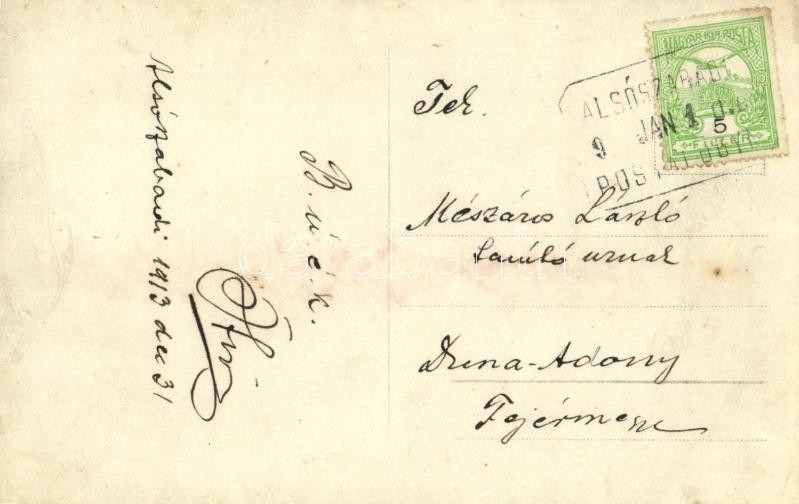 Alsószabadi 1913 dec 31
B. ú. é. k.
Tek.
Mészáros László
tanító urnak
Duna-Adony
Fejérm
MAGYAR KIR. POSTA
5
FILLÉR
ALSÓSZABADI
9 JAN 1
POSTAI ÜGYN
darabanth